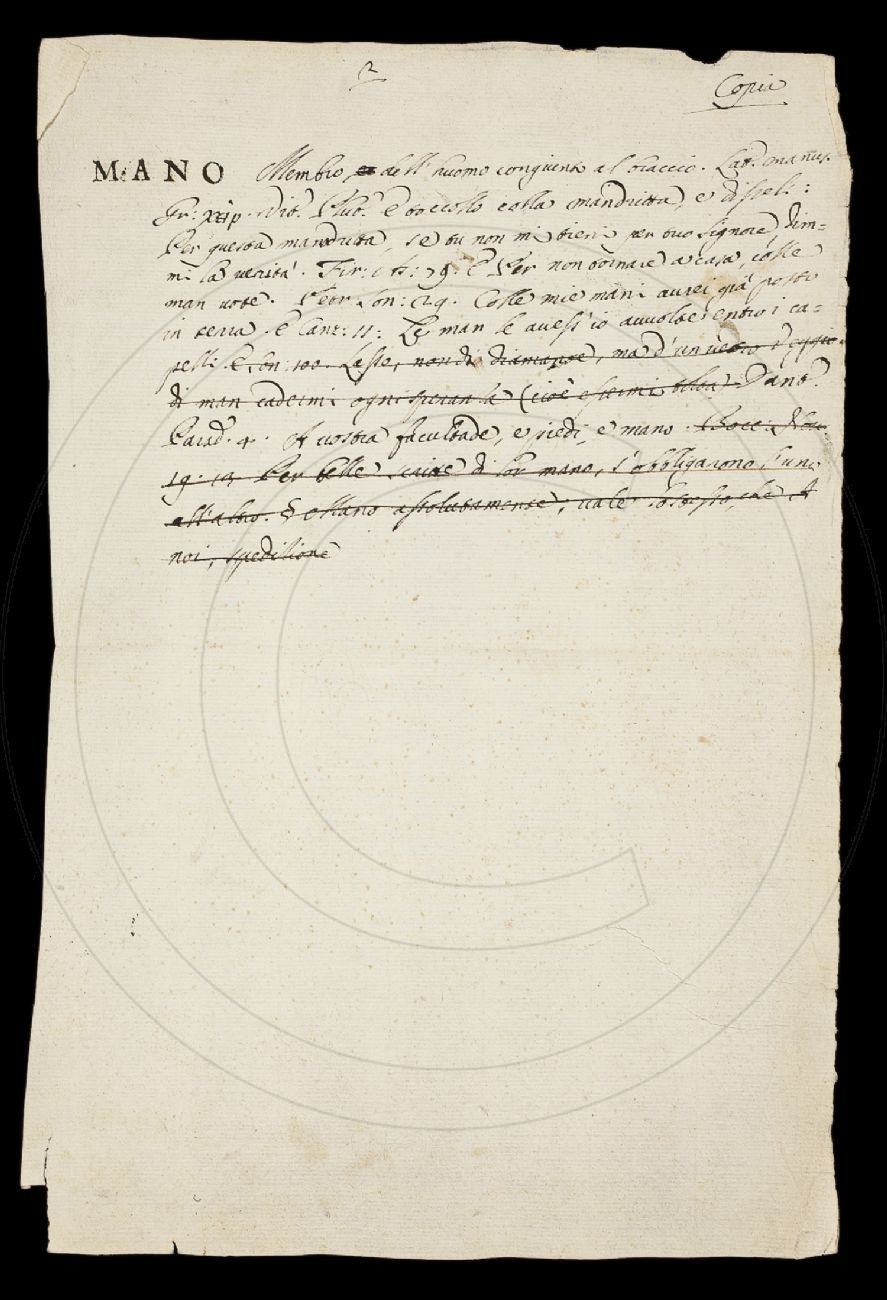 2
Copia
MANO Membro, dell'huomo congiunto al braccio. Lat. manus.
Gr: χείρ. Vit. Plut. E toccollo colla mandritta, e dissli:
Per questa mandritta, se tu non mi tieni per tuo signore, dim-
mi la verità. Fir: As: 79. E Per non tornare a casa, colle
man vote. Petr. Son: 29. Colle mie mani avrei già posto
in terra. E Canz: 11: Le man le avess'io avvolte entro i ca-
pelli. E Son: 100. Lasso, non di diamante, ma d'un vetro Veggio
di man cadermi ogni speranza (cioè essermi tolta) Dant.
Parad. 4. A vostra facultade, e piedi, e mano. Bocc: Nov.
19. 13. Per belle scritte di lor mano, s'obbligarono l'uno
all'altro. assolutamente, vale che A
noi, spedizione